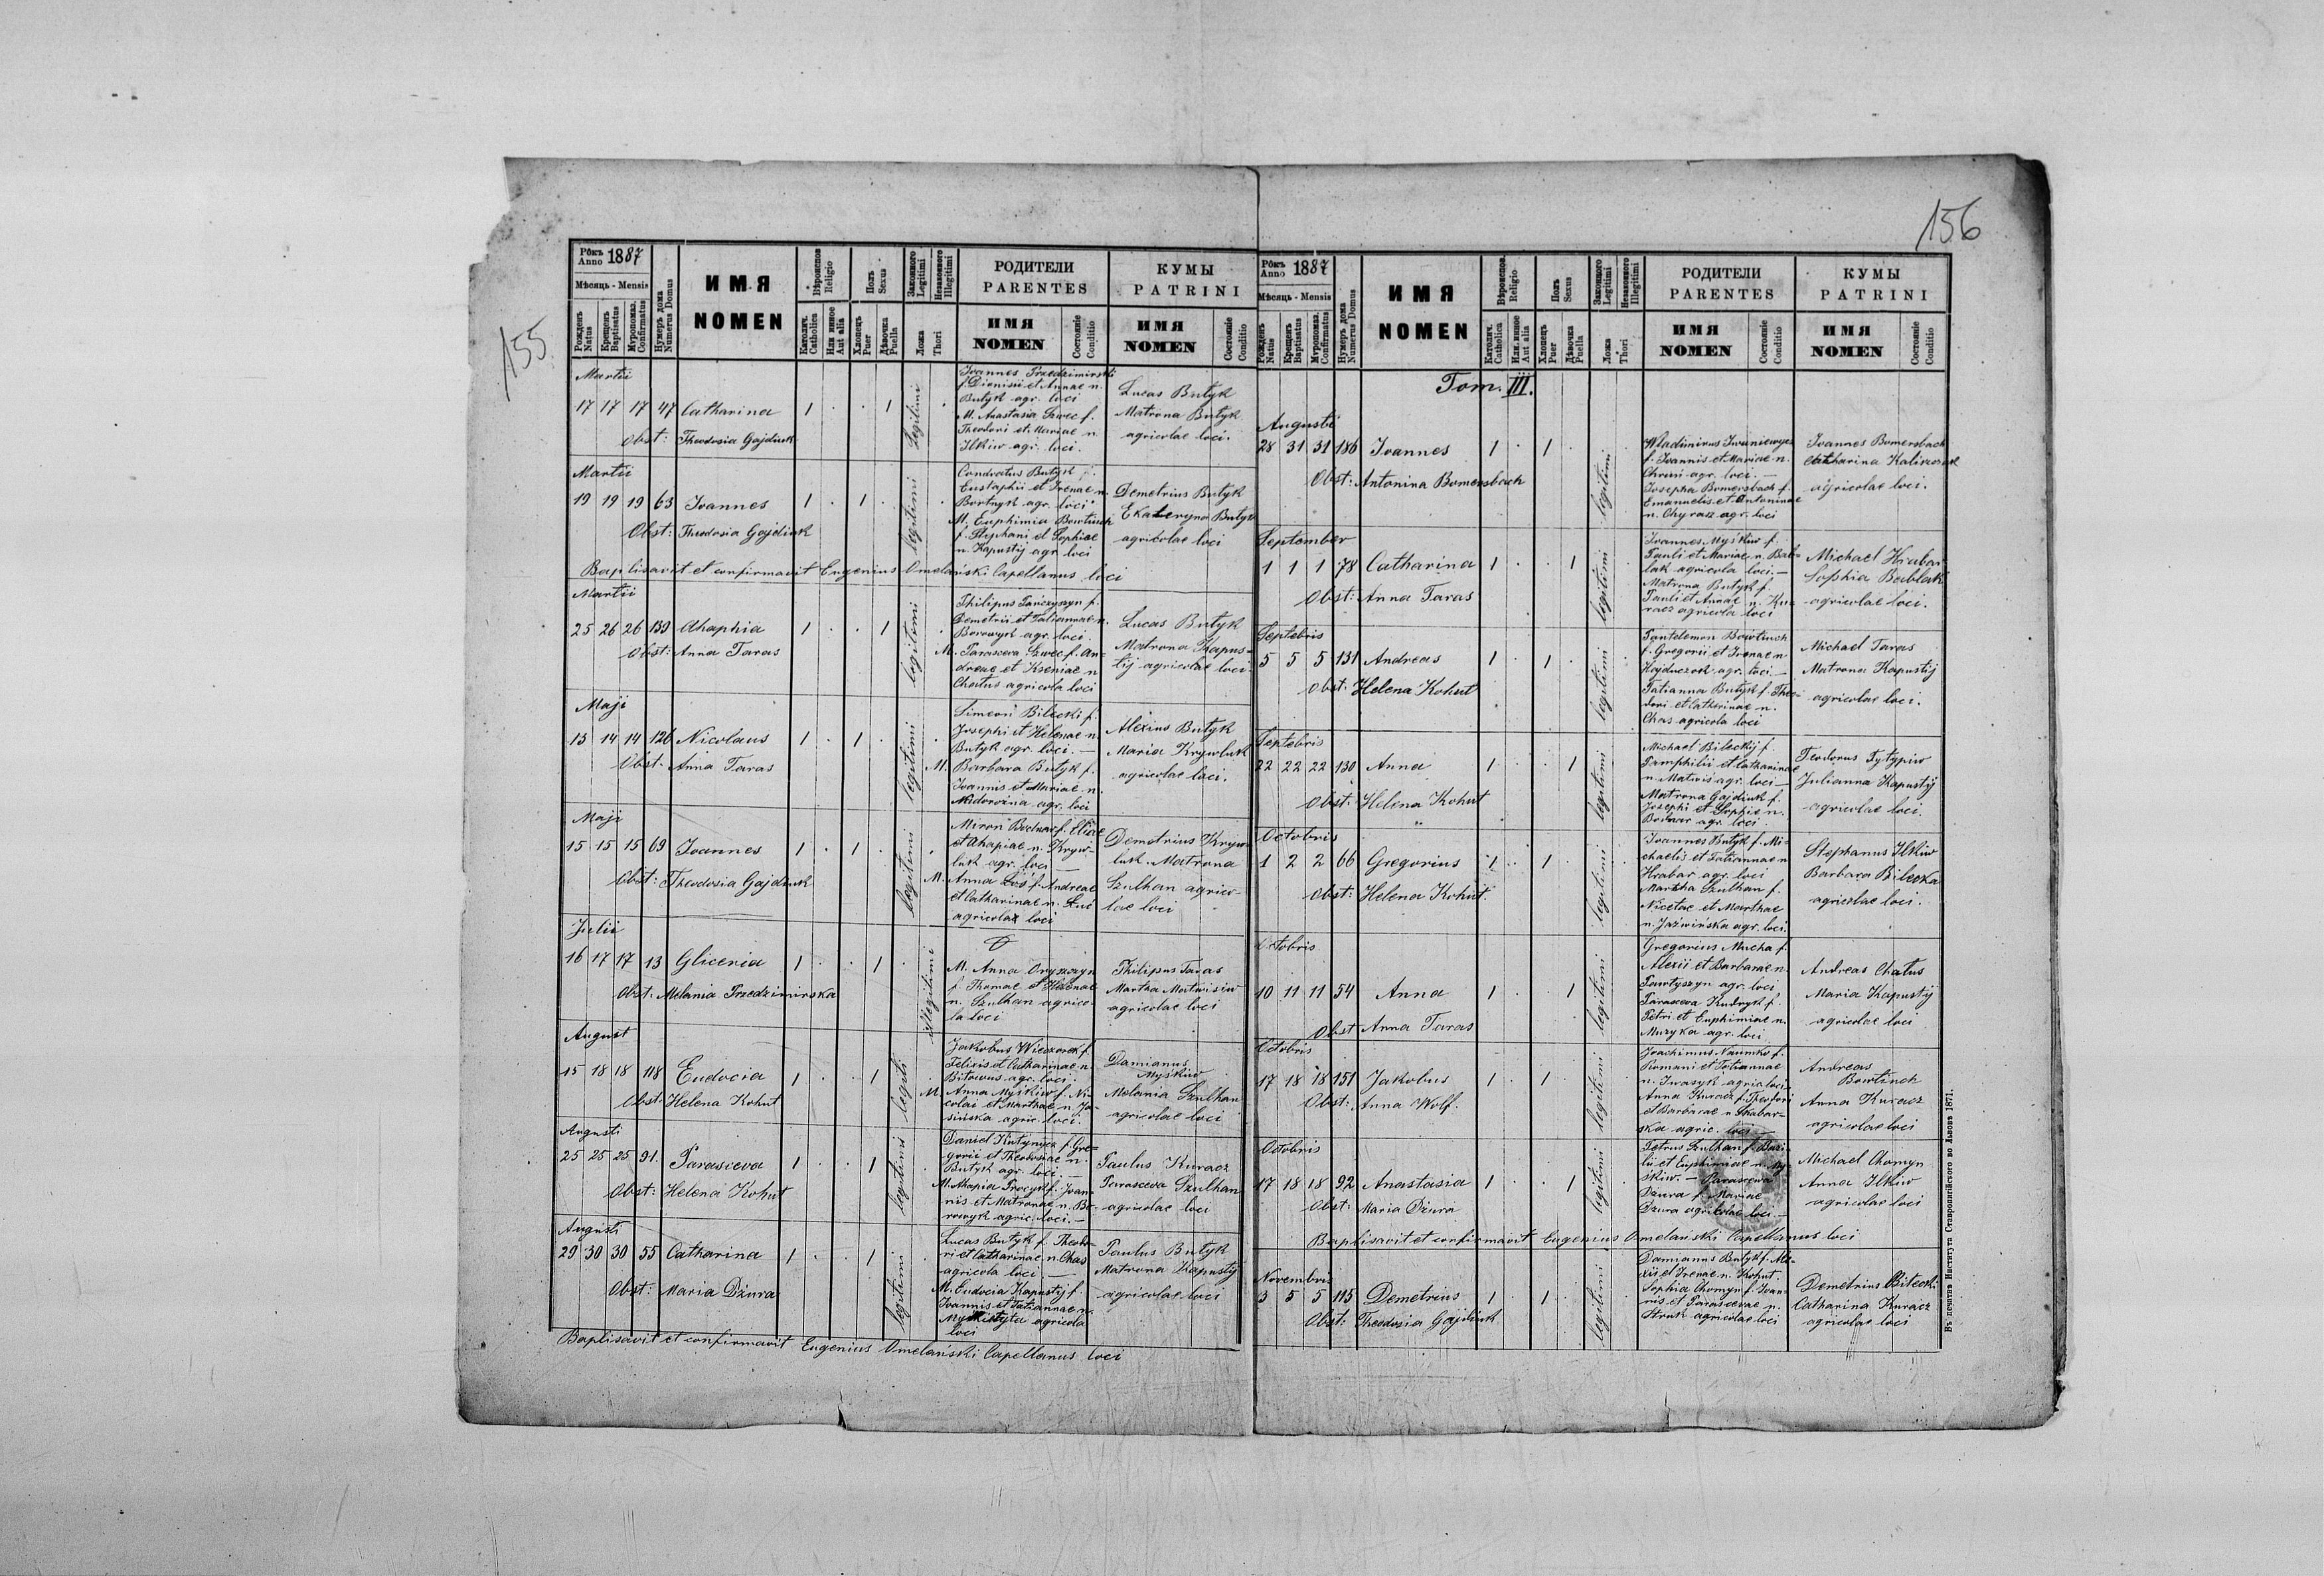 155
Рôкъ Anno 1887
Мѣсяць - Mensis
Рожденъ Natus
Крещенъ Baptisatus
Муропомаз. Confirmatus
Нумеръ дома Numerus Domus
ИМЯ
NOMEN
Вѣроисповѣд. Religio
Католич. Catholica
Или инное Aut alia
Полъ Sexus
Хлопець Puer
Дѣвочка Puella
Законного Legitimi
Незаконного Illegitimi
Ложа Thori
РОДИТЕЛИ
PARENTES
ИМЯ
NOMEN
Состояніе Conditio
КУМЫ
PATRINI
ИМЯ
NOMEN
Состояніе Conditio
Martii
17 17 17 47 Catharina 1 . . 1 Legitimi
Obst: Theodosia Gajdiuk
Joannes Przedzimirski
f. Dionisii et Annae n.
Butyk agr. loci
M. Anastasia Szwec f.
Theodori et Mariae n.
Ilkiw agr. loci.
Lucas Butyk
Matrona Butyk
agricolae loci.
Martii
19 19 19 63 Joannes 1 . 1 . legitimi
Obst: Theodosia Gajdiuk
Condratus Butyk f.
Eustaphii et Irenae n.
Bortnyk agr. loci
M. Euphimia Bowtiuch
f. Stephani et Sophiae
n. Kapustij agr. loci
Demetrius Butyk
Ekateryna Butyk
agricolae loci
Baptisavit et confirmavit Eugenius Omelański Capellanus loci
Martii
25 26 26 139 Ahaphia 1 . . 1 legitimi
Obst: Anna Taras
Philipus Pańczyszyn f.
Demetrii et Tatiannae n.
Borowyk agr. loci.
M. Parasceva Szwec f. An-
dreae et Kseniae n.
Chatus agricola loci
Lucas Butyk
Matrona Kapus-
tij agricolae loci.
Maji
13 14 14 126 Nicolaus 1 . 1 . legitimi
Obst: Anna Taras
Simeon Bilecki f.
Josephi et Helenae n.
Butyk agr. loci. —
M. Barbara Butyk f.
Joannis et Mariae n.
agr. loci
Alexius Butyk
Maria Krywluk
agricolae loci.
Maji
15 15 15 69 Joannes 1 . 1 . legitimi
Obst: Theodosia Gajdiuk
Miron Bodnar f. Eliae
et Ahapiae n. Kryw-
luk agr. loci —
M. Anna f. Andreae
et Catharinae n.
agricolae loci
Demetrius Kryw-
luk. Matrona
Szulhan agrico-
lae loci
Julii
16 17 17 13 Gliceria 1 . . 1 illegitimi
Obst: Melania Przedzimirska
M. Anna Onyszczyn
f. Thomae et Helenae
n. Szulhan agrico-
la loci
Philipus Taras
Martha Matwisiw
agricolae loci
August
15 18 18 118 Eudocia 1 . . 1 legiti
Obst: Helena Kohut
Jakobus Wieczorek f.
Felixis et Catharinae n.
Bitowus agr. loci.
M. Anna Myśkiw f. Ni-
colai et Marthae n. Ja-
sińska agric. loci.
Damianus
Myśkiw
Melania Szulhan
agricolae loci
Augusti
25 25 25 91. Parasceva 1 . . 1 legitimi
Obst: Helena Kohut
Daniel Kutynyca f. Gre-
gorii et Theodosiae n.
Butyk agr. loci —
M. Ahapia Procyk f. Joan-
nis et Matronae n. Bo-
rowyk agric. loci. —
Paulus Kuracz
Parasceva Szulhan
agricolae loci
Augusti
29 30 30 55 Catharina 1 . . 1 legitimi
Obst: Maria Dżura
Lucas Butyk f. Theodo-
ri et Catharinae n. Chas
agricola loci. —
M. Eudocia Kapustij f.
Joannis et Tatiannae n.
Mykietyta agricola
loci
Paulus Butyk
Matrona Kapustij
agricolae loci
Baptisavit et confirmavit Eugenius Omelański Capellanus loci
156
Рôкъ Anno 1887
Мѣсяць - Mensis
Рожденъ Natus
Крещенъ Baptisatus
Муропомаз. Confirmatus
Нумеръ дома Numerus Domus
ИМЯ
NOMEN
Вѣроисповед. Religio
Католич. Catholica
Или инное Aut alia
Полъ Sexus
Хлопець Puer
Дѣвочка Puella
Законного Legitimi
Незаконного Illegitimi
Ложа Thori
РОДИТЕЛИ
PARENTES
ИМЯ
NOMEN
Состояніе Conditio
КУМЫ
PATRINI
ИМЯ
NOMEN
Состояніе Conditio
Tom. III.
Augusti
28 31 31 186 Joannes 1 . 1 legitimi
Obst: Antonina Bomersbach
Wladimirus Iwaniewycz
f. Joannis et Mariae n.
agr. loci. —
Josepha Bomersbach f.
Emanuelis et Antoninae
n. Chyracz agr. loci
Joannes Bomersbach
Catharina Kaliszczuk
agricolae loci.
September
1 1 1 78 Catharina 1 . . 1 legitimi
Obst: Anna Taras
Joannes Myśkiw f.
Pauli et Mariae n. Bab-
lak agricola loci. —
Matrona Butyk f.
Pauli et Annae n. Ku-
racz agricola loci
Michael Hrabar
Sophia Bablak
agricolae loci.
Septebris
5 5 5 131 Andreas 1 . 1 legitimi
Obst: Helena Kohut
Pantelemon Bowtiuch
f. Gregorii et Irenae n.
Hajduczok agr. loci. —
Tatianna Butyk f. Theo-
dori et Catharinae n.
Chas agricola loci
Michael Taras
Matrona Kapustij
agricolae loci.
Septebris
22 22 22 130 Anna 1 . . 1 legitimi
Obst: Helena Kohut
Michael Bileckij f.
Pamphilii et Catharinae
n. Matwis agr. loci —
Matrona Gajdiuk f.
Josephi et Sophiae n.
Bodnar agr. loci.
Teodorus Pytypiw
Julianna Kapustij
agricolae loci.
Octobris
1 2 2 66 Gregorius 1 . 1 legitimi
Obst: Helena Kohut.
Joannes Butyk f. Mi-
chaelis et Tatiannae n.
Hrabar agr. loci
Martha Szulhan f.
Nicetae et Marthae
n. Jaźwińska agr. loci.
Stephanus Ilkiw
Barbara Bilecka
agricolae loci.
Octobris
10 11 11 54 Anna 1 . . 1 legitimi
Obst Anna Taras
Gregorius Mucha f.
Alexii et Barbarae n.
Pawłyszyn agr. loci
Parasceva Kudryk f.
Petri et Euphimiae n.
Muzyka agr. loci
Andreas Chatus
Maria Kapustij
agricolae loci
Octobris
17 18 18 151 Jakobus 1 . 1 legitimi
Obst: Anna Wolf.
Joachimus Naumko f.
Romani et Tatiannae
n. Iwasyk agric. loci
Anna Kuracz f. Theodori
et Barbarae n. Skabar-
ska agric. loci —
Andreas
Bowtiuch
Anna Kuracz
agricolae loci
Octobris
17 18 18 92 Anastasia 1 . . 1 legitimi
Obst: Maria Dżura
Petrus Szulhan f. Basi-
lii et Euphimiae n. My-
śkiw. — Parasceva
Dżura f. Mariae
Dżura agricolae loci —
Michael Chomyn
Anna Ilkiw
agricolae loci
Baptisavit et confirmavit Eugenius Omelański Capellanus loci
Novembris
3 5 5 115 Demetrius 1 . 1 legitimi
Obst: Theodosia Gajdiuk
Damianus Butyk f. Ale-
xii et Irenae n. Kohut.
Sophia Chomyn f. Joan-
nis et Parascevae n.
Struk agricolae loci
Demetrius Bilecki
Catharina Kuracz
agricolae loci
Въ печатни Института Ставропигійского во Львовѣ 1871.